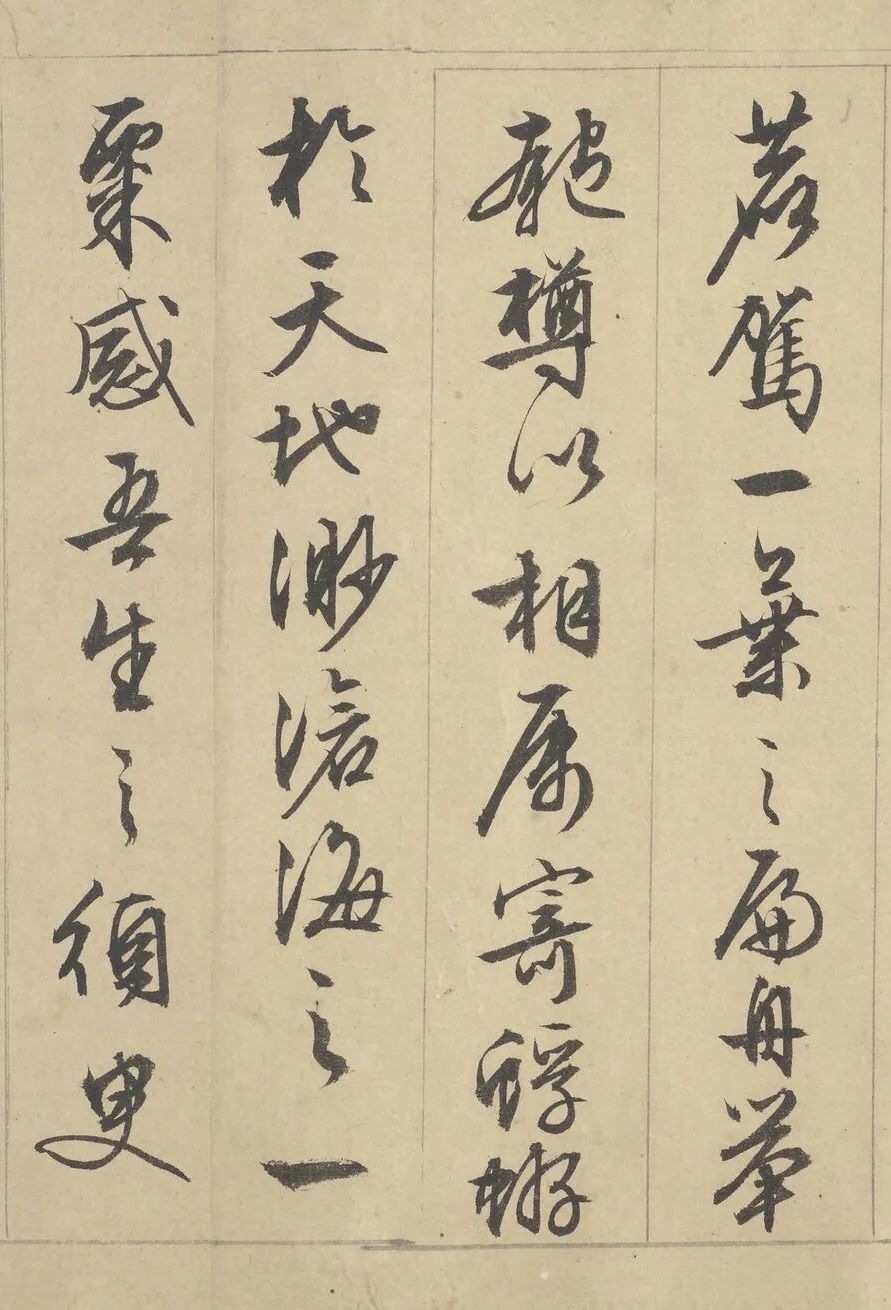 鹿駕一葉之扁舟舉
匏樽以相屬寄蜉蝣
於天地渺滄海之一
粟感吾生之須臾